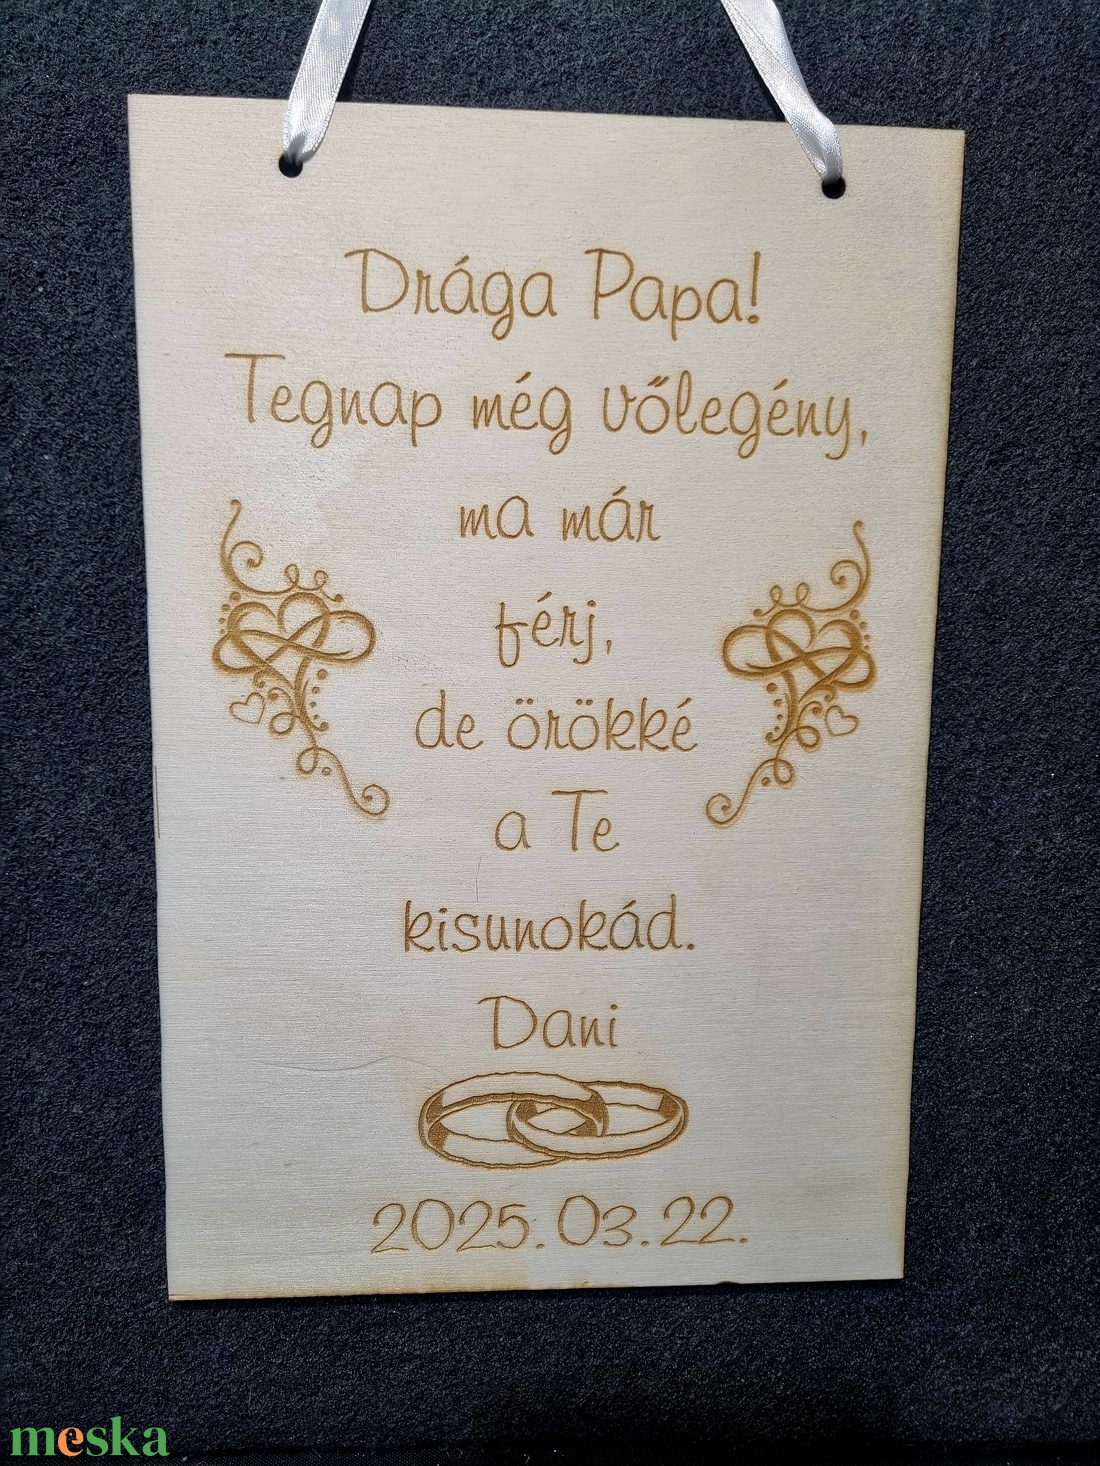 Drága Papa!
Tegnap még vőlegény,
ma már
férj,
de örökké
a Te
kisunokád.
Dani
2025.03.22.
meska